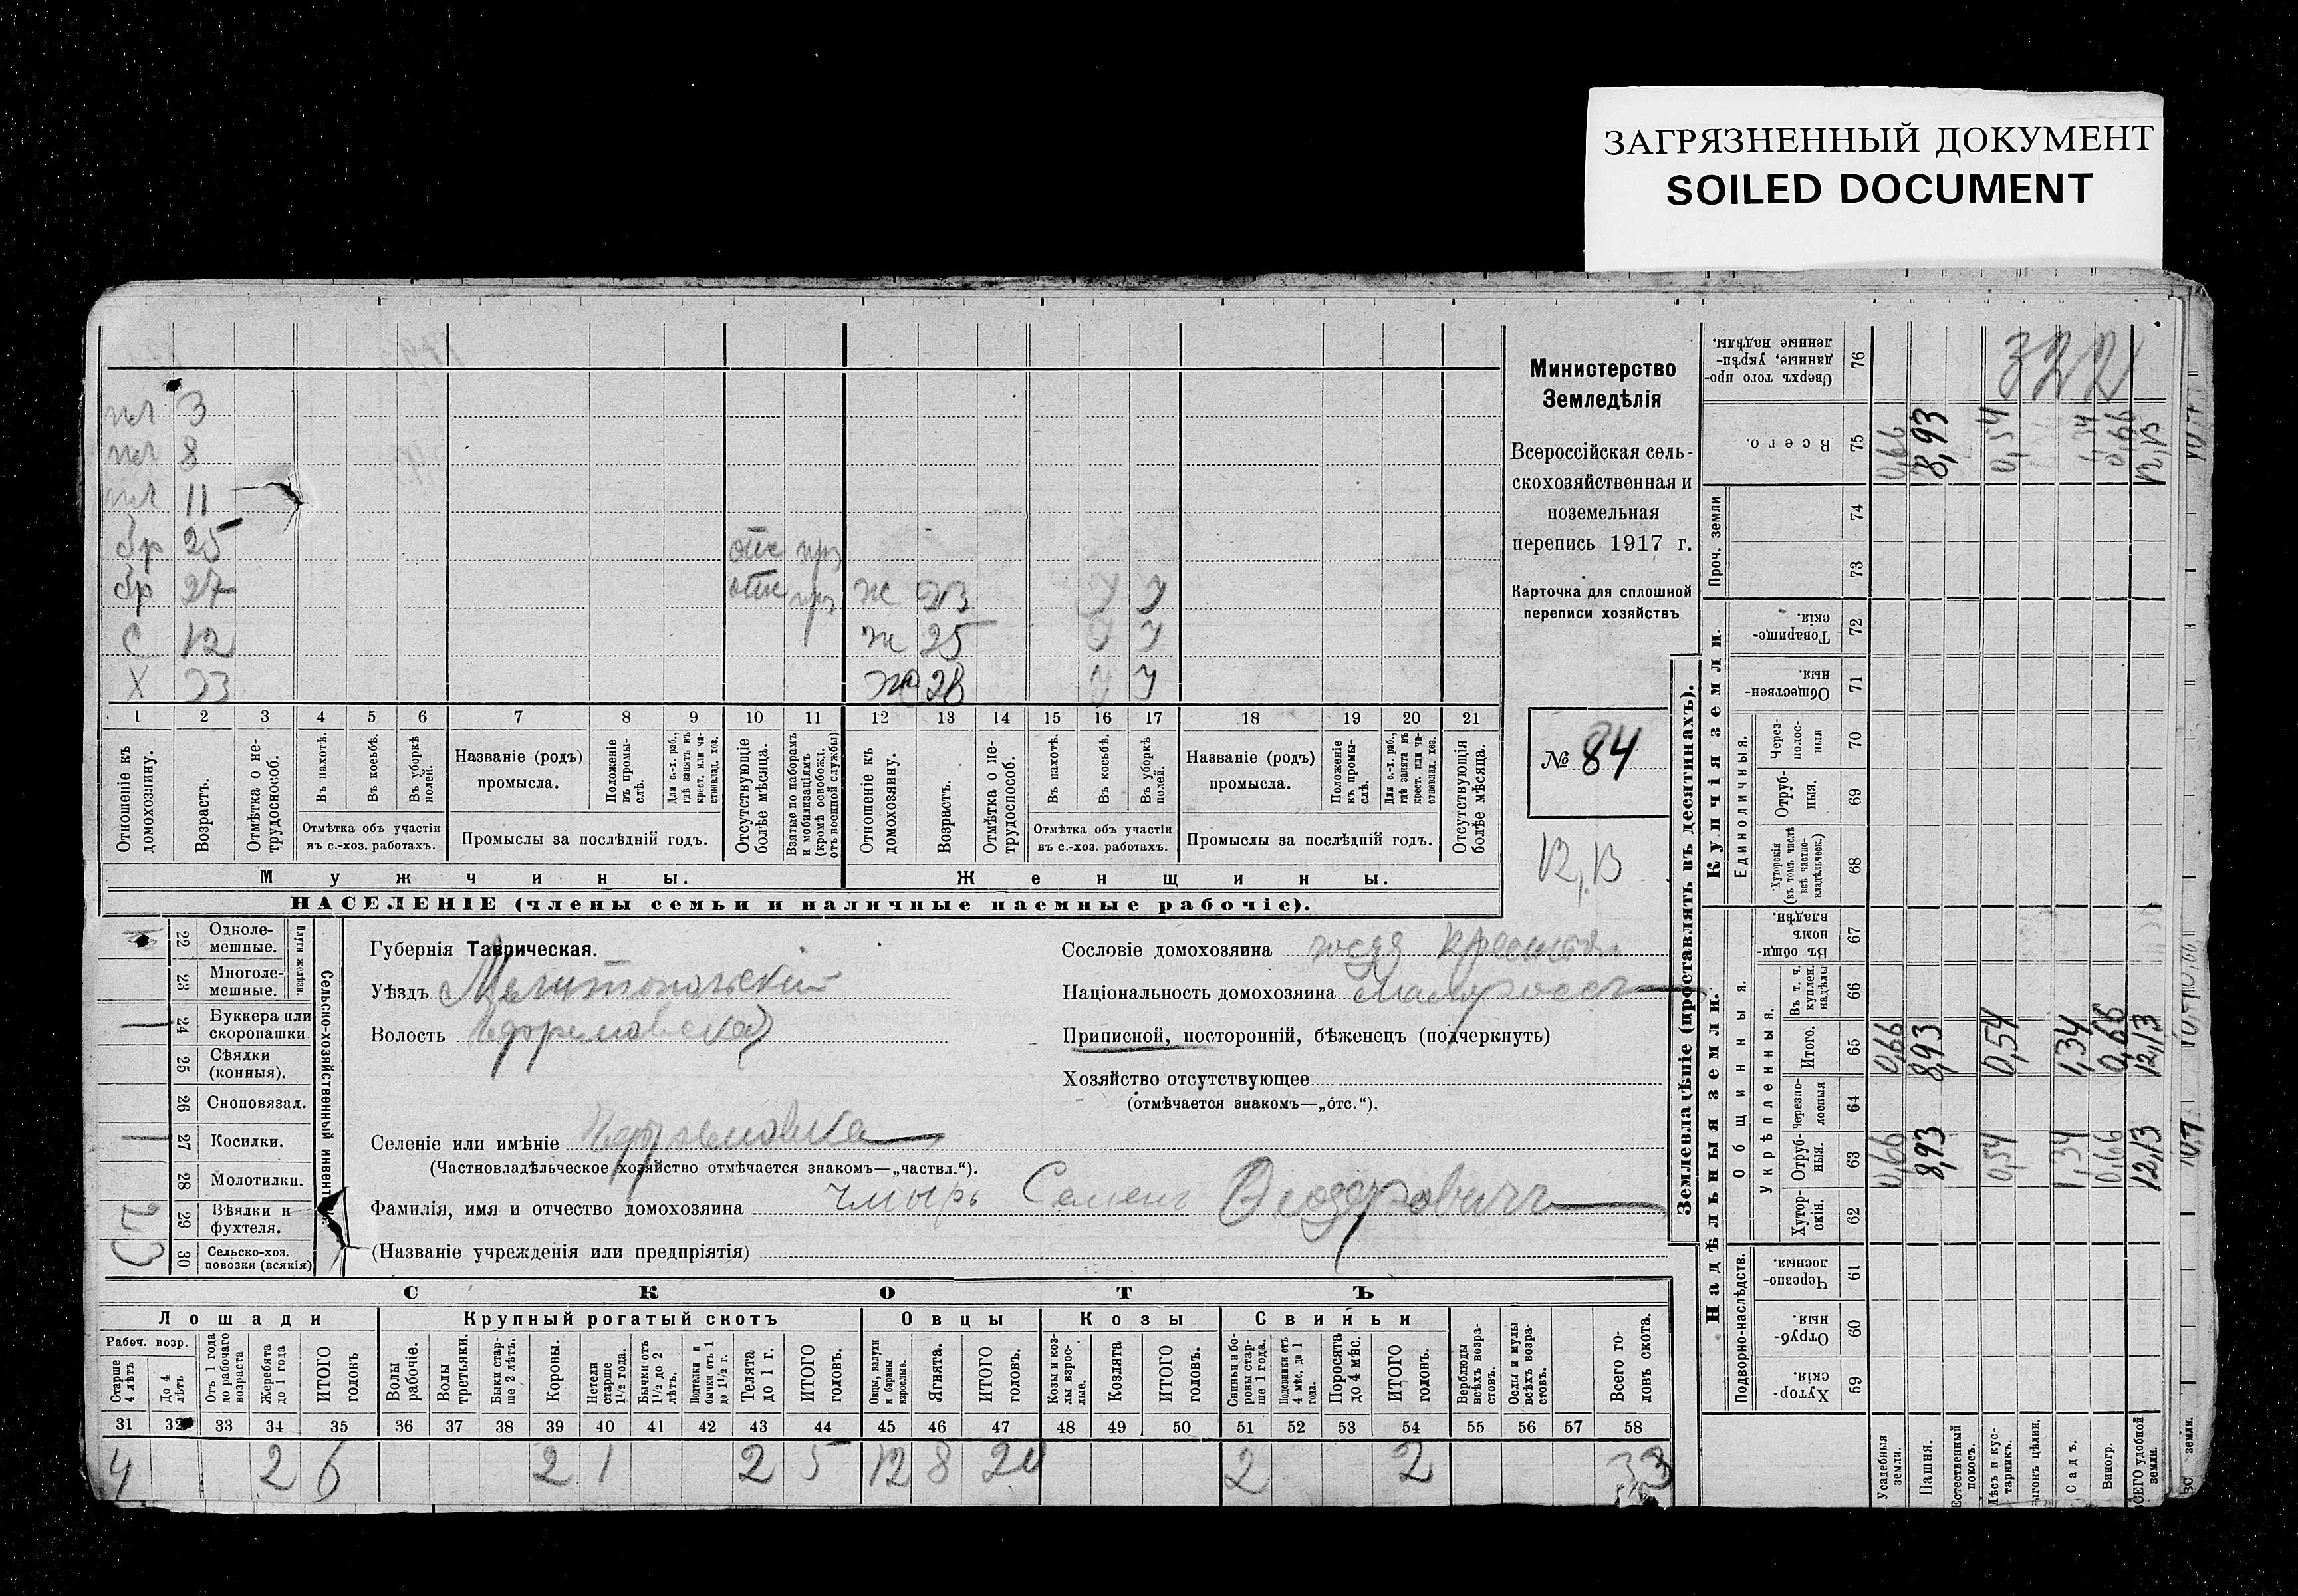 ЗАГРЯЗНЕННЫЙ ДОКУМЕНТ
SOILED DOCUMENT
3
8
11
бр 25 отс
бр 27 отс ж 23 У У
С 12 ж 25 У У
Х 33 ж 28 У У
1 2 3 4 5 6 7 8 9 10 11 12 13 14 15 16 17 18 19 20 21
Отношеніе къ домохозяину.
Возрастъ.
Отмѣтка о не-
трудоспособ.
Въ пахотѣ.
Въ косьбѣ.
Въ уборкѣ
полей.
Отмѣтка объ участіи
въ с.-хоз. работахъ.
Названіе (родъ)
промысла.
Положеніе
въ промы-
слѣ.
Для с.-х. раб.,
гдѣ занятъ въ
крест. или ча-
стновлад. хоз.
Промыслы за послѣдній годъ.
Отсутствующіе
болѣе мѣсяца.
Взятые по наборамъ
и мобилизаціямъ
(кромѣ освобожд.
отъ военной службы)
Отношеніе къ
домохозяину.
Возрастъ.
Отмѣтка о не-
трудоспособ.
Въ пахотѣ.
Въ косьбѣ.
Въ уборкѣ
полей.
Отмѣтка объ участіи
въ с.-хоз. работахъ.
Названіе (родъ)
промысла.
Положеніе
въ промы-
слѣ.
Для с.-х. раб.,
гдѣ занята въ
крест. или ча-
стновлад. хоз.
Промыслы за послѣдній годъ.
Отсутствующія
болѣе мѣсяца.
Мужчины.
Женщины.
НАСЕЛЕНІЕ (члены семьи и наличные наемные рабочіе).
Министерство
Земледѣлія
Всероссійская сель-
скохозяйственная и
поземельная
перепись 1917 г.
Карточка для сплошной
переписи хозяйствъ
№ 84
12,13
22 Одноле-
мешные.
23 Многоле-
мешные.
Плуги желѣзн.
24 Буккера или
скоропашки.
25 Сѣялки
(конныя).
26 Сноповязал.
27 Косилки.
28 Молотилки.
29 Вѣялки и
фухтеля.
30 Сельско-хоз.
повозки (всякія)
Сельско-хозяйственный
Губернія Таврическая.
Уѣздъ Мелитопольскій
Волость Ефремовская
Селеніе или имѣніе Ефремовка
(Частновладѣльческое хозяйство отмѣчается знакомъ—„частвл.“).
Фамилія, имя и отчество домохозяина Чмырь Семенъ Федоровичъ
(Названіе учрежденія или предпріятія)
Сословіе домохозяина
Національность домохозяина малоросс
Приписной, посторонній, бѣженецъ (подчеркнуть)
Хозяйство отсутствующее
(отмѣчается знакомъ—„отс.“).
СКОТЪ
Лошади
Крупный рогатый скотъ
Овцы
Козы
Свиньи
Рабоч. возр.
Старше
4 лѣтъ
До 4
лѣтъ
Отъ 1 года
до рабочаго
возраста
Жеребята
до 1 года
ИТОГО
головъ
Волы
рабочіе.
Волы
третьяки.
Быки стар-
ше 2 лѣтъ.
Коровы.
Нетели
старше
1½ года.
Бычки отъ
1½ до 2
лѣтъ.
Подтелки и
бычки отъ 1
до 1½ г.
Телята
до 1 г.
ИТОГО
головъ.
Овцы, валухи
и бараны
взрослые.
Ягнята.
ИТОГО
головъ.
Козы и коз-
лы взрос-
лые.
Козлята
ИТОГО
головъ.
Свиньи и бо-
ровы стар-
ше 1 года.
Подсвинки отъ
4 мѣс. до 1
года.
Поросята
до 4 мѣс.
ИТОГО
головъ.
Верблюды
всѣхъ возра-
стовъ.
Ослы и мулы
всѣхъ возра-
стовъ.
Всего го-
ловъ скота.
31 32 33 34 35 36 37 38 39 40 41 42 43 44 45 46 47 48 49 50 51 52 53 54 55 56 57 58
4 2 6 2 1 2 5 12 8 20 2 2 33
Землевладѣніе (проставлять въ десятинахъ).
Надѣльныя земли.
Купчія земли.
Проч. земли
Подворно-наслѣдств.
Общинныя.
Укрѣпленныя.
Единоличныя.
Сверхъ того про-
данные, укрѣп-
ленные надѣлы.
76
322
Всего.
75
0,66 8,93 0,54 1,34 0,66 12,13
74
73
Товарище-
скія.
72
Обществен-
ныя
71
Через-
полос-
ныя
70
Отруб-
ныя.
69
Хуторскія
(въ томъ числѣ
всѣ частно-
владѣльческ.)
68
Въ общин-
номъ
владѣн.
67
Въ т. ч.
куплен.
надѣлы
66
Итого.
65
0,66 8,93 0,54 1,34 0,66 12,13
Черезпо-
лосныя
64
Отруб-
ныя.
63
0,66 8,93 0,54 1,34 0,66 12,13
Хутор-
скія.
62
Черезпо-
лосныя.
61
Отруб-
ныя
60
Хутор-
скія
59
Усадебныя
земли.
Пашня.
Естественный
покосъ.
Лѣсъ и кус-
тарникъ.
Садъ.
Виногр.
удобной
земли.
земли.